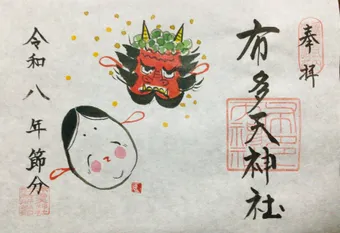 奉拝
有多天神社
令和八年節分